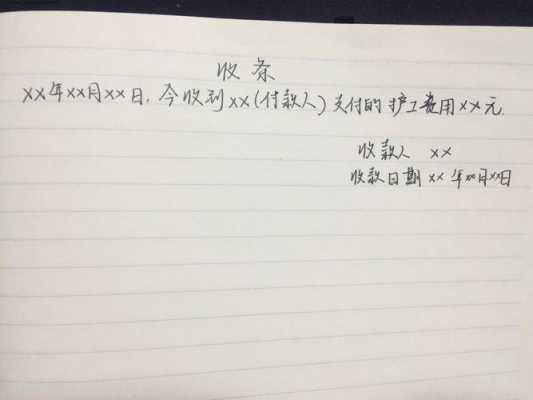 收条
xx年xx月xx日，今收到xx（付款人）支付的护工费用xx元.
收款人 xx
收款日期 xx 年xx月xx日